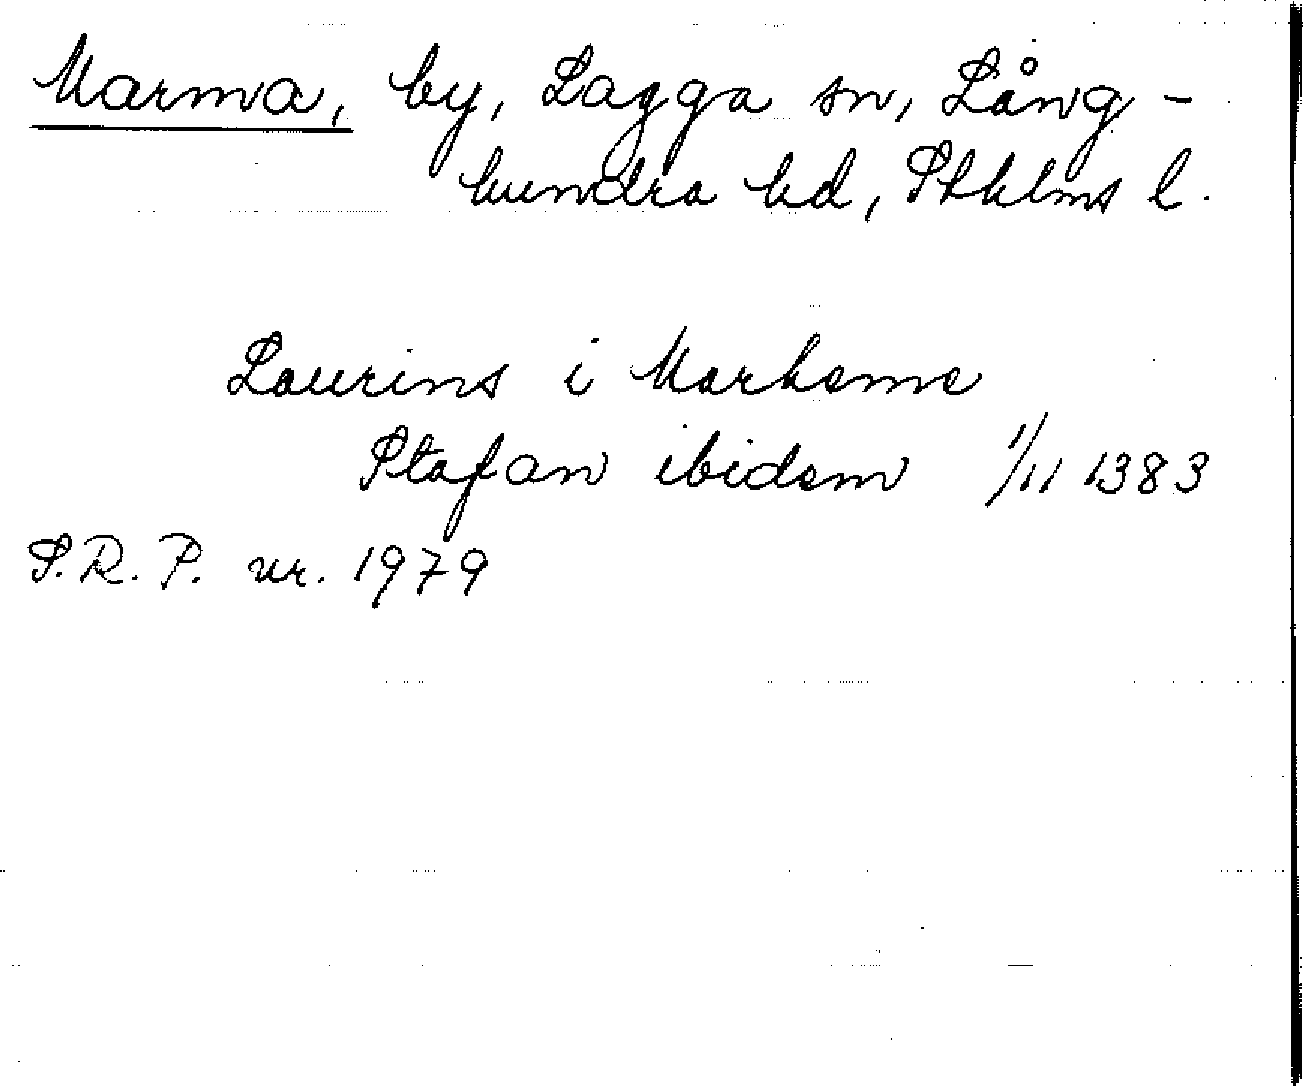 Marma, by, Lagga sn, Lång-
hundra hd, Sthlms l.
Laurins i Markeme
Stafan ibidem 1/11 1383
S.R.P. nr. 1979